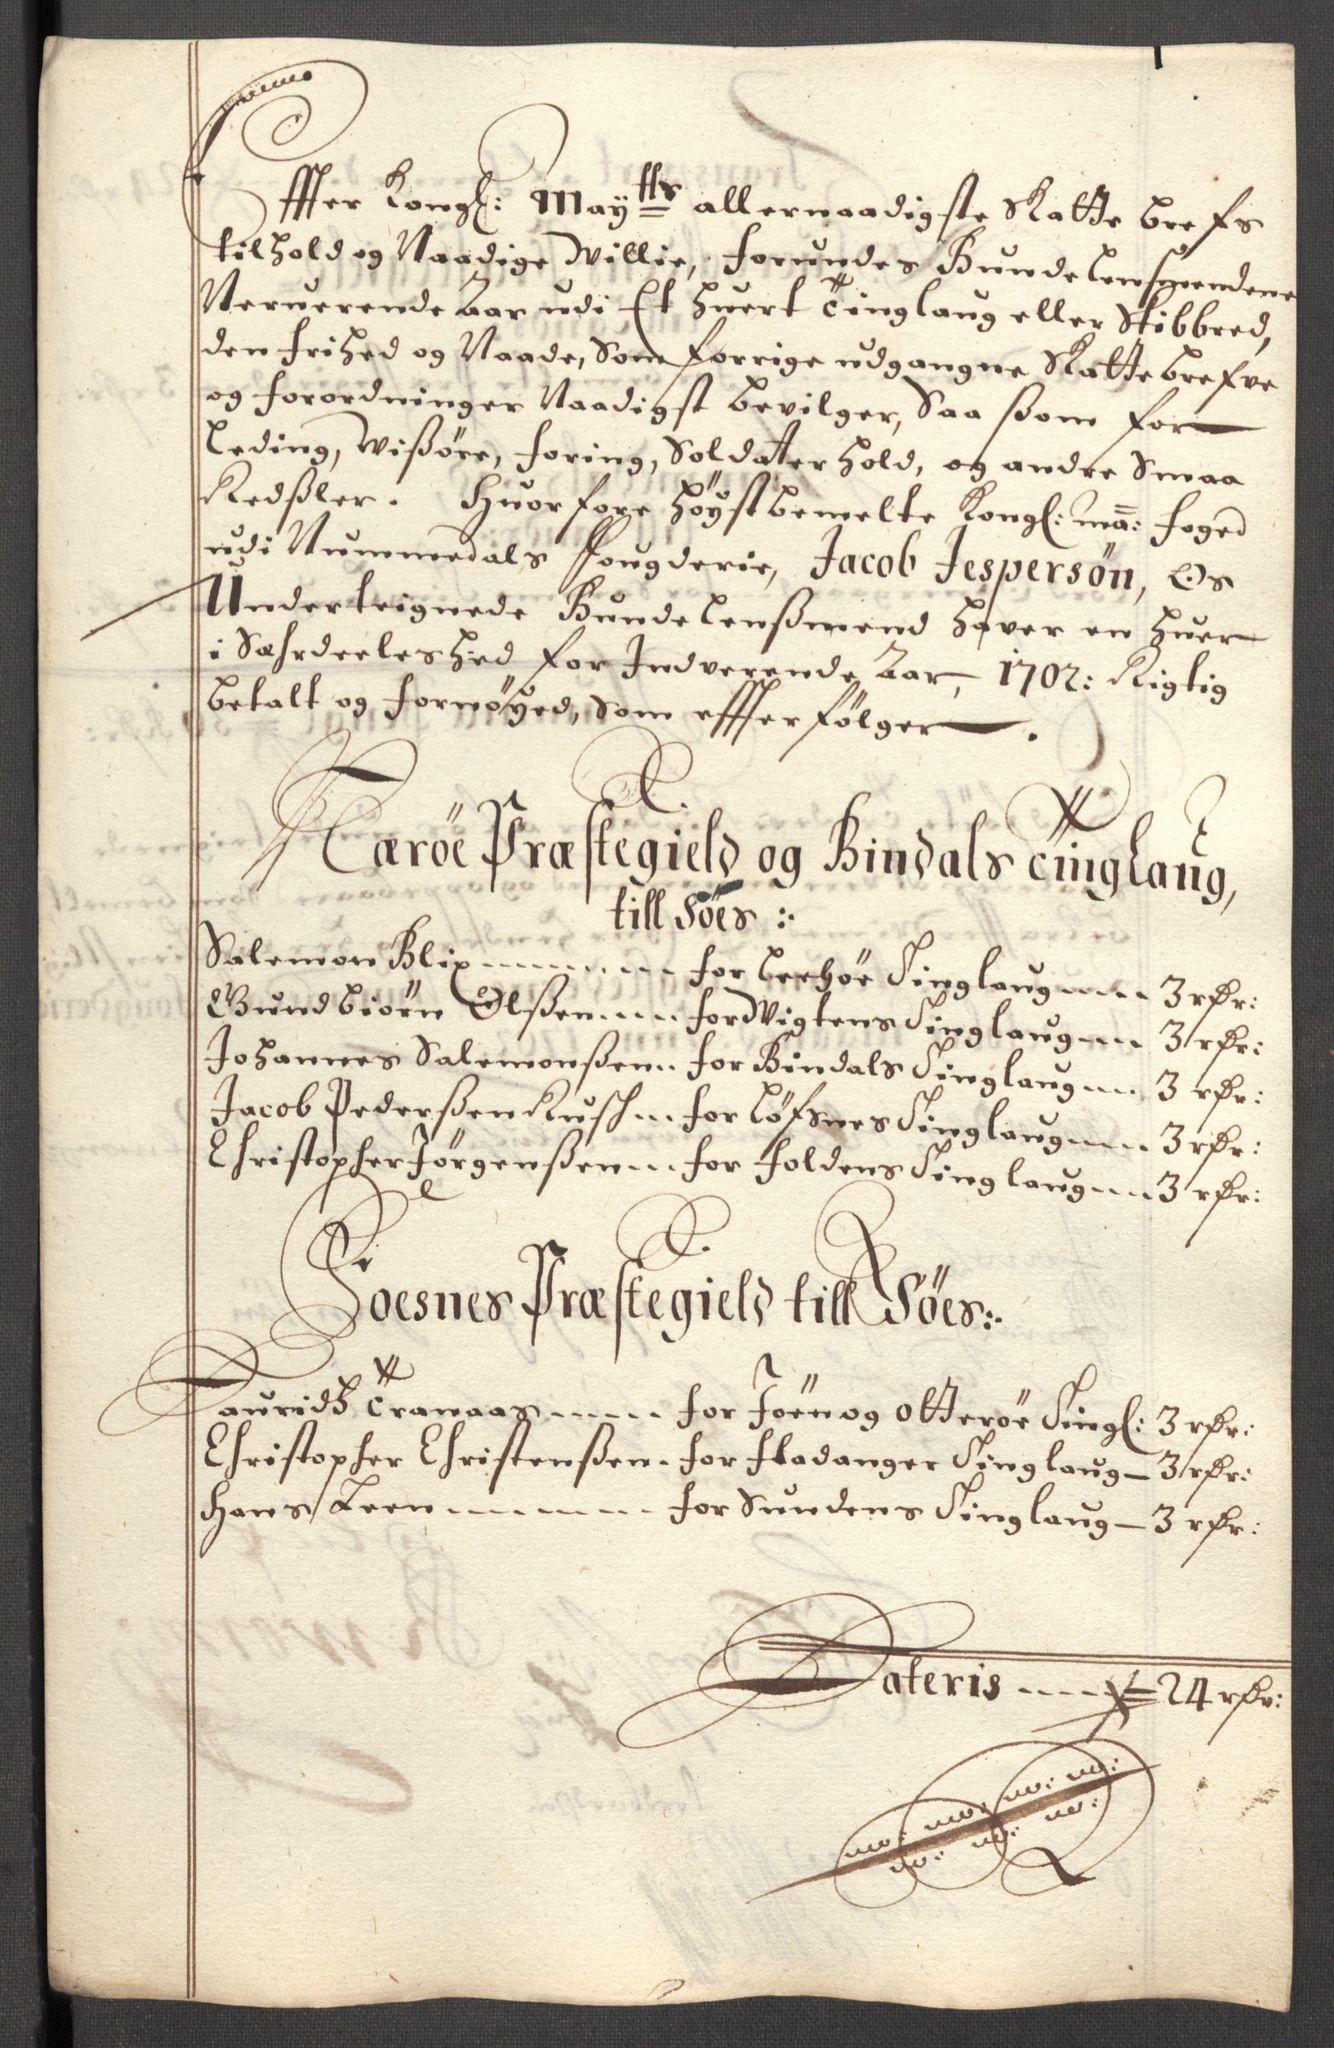 Effter Kongl: Mayttz allernaadigste Skatte brefs
tilhold og Naadige Willie, forundes Bunde Lensmendene
Nerverende Aar udi Et huert Tinglaug eller Skibbred,
den frihed og Naade, Som forrige udgangne Skatte brefve
og forordninger Naadigst bevilger, Saa ßom for
Leding, Wißöre, foring, Soldaterhold, og andre Smaa
Redßler. Huorfore höystbemelte Kongl: Ma: foged
udi Nummedals fougderie, Jacob Jespersön, Os
Underteignede Bunde Lensmend haver en huer
i Sæhrdeeleshed for Indverende Aar, 1702: Rigtig
betalt og fornöyed, Som effterfölger.
Nærøe Præstegield og Bindals Tinglaug,
till Söes:
Salemon Blix for Leehöe Tinglaug 3 rdr:
Gundbiörn Olßen for Wigtens Tinglaug 3 rdr:
Johannes Salemonßen for Bindals Tinglaug 3 rdr:
Jacob Pederßen Kusch for Löfsnes Tinglaug 3 rdr:
Christopher Jörgenßen for foldens Tinglaug 3 rdr:
Foesnes Præstegield till Söes:
Lauridtz Tranaas for Jöen og Otterøe Tingl: 3 rdr:
Christopher Christenßen for fladanger Tinglaug 3 rdr:
Hans Leen for Sundens Tinglaug 3 rdr:
Lateris 24 rdr: